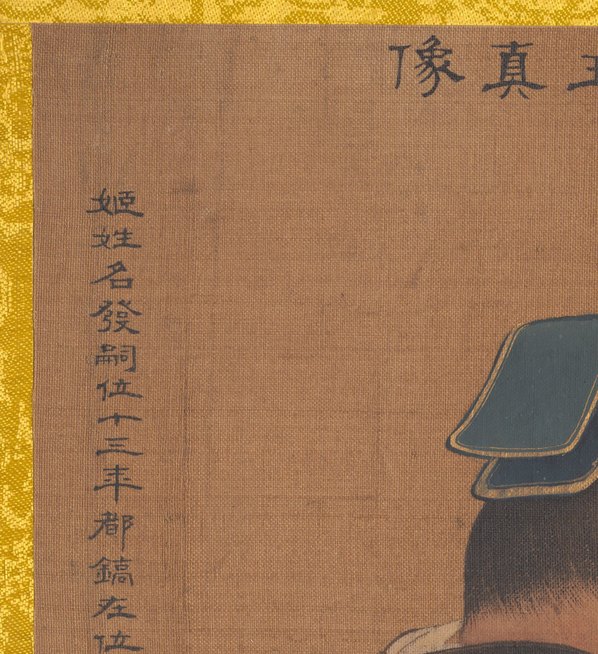 真像
姬姓名發嗣位十三年都鎬在位